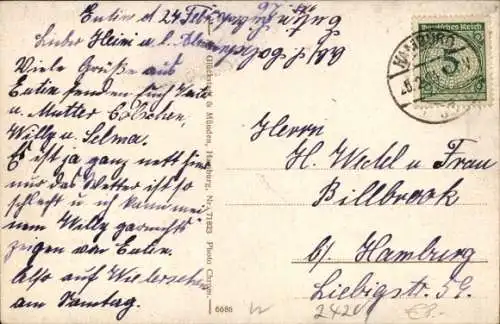 Eutin d 24 Febr.
Lieber Heini u. l.
Viele Grüße aus
Eutin senden
u. Mutter
Willy u. Selma.
Es ist ja ganz nett hier
nur das Wetter ist so
schlecht u. ich kann mei
nem Willy garnichts
zeigen von Eutin.
Also auf Wiedersehen
am Sonntag.
Glückstadt & Münden, Hamburg. Nr. 71823 Photo
6686
Deutsches Reich
5
HAMBURG
Herrn
H. Wedel u Frau
Billbrook
b/ Hamburg
Liebigstr. 59.
2420